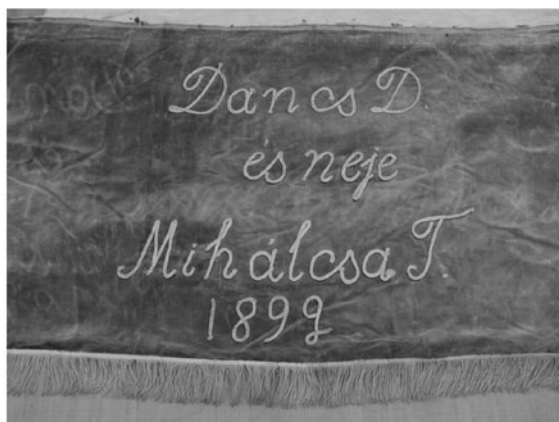 Dancs D.
és neje
Mihálcsa T.
1899